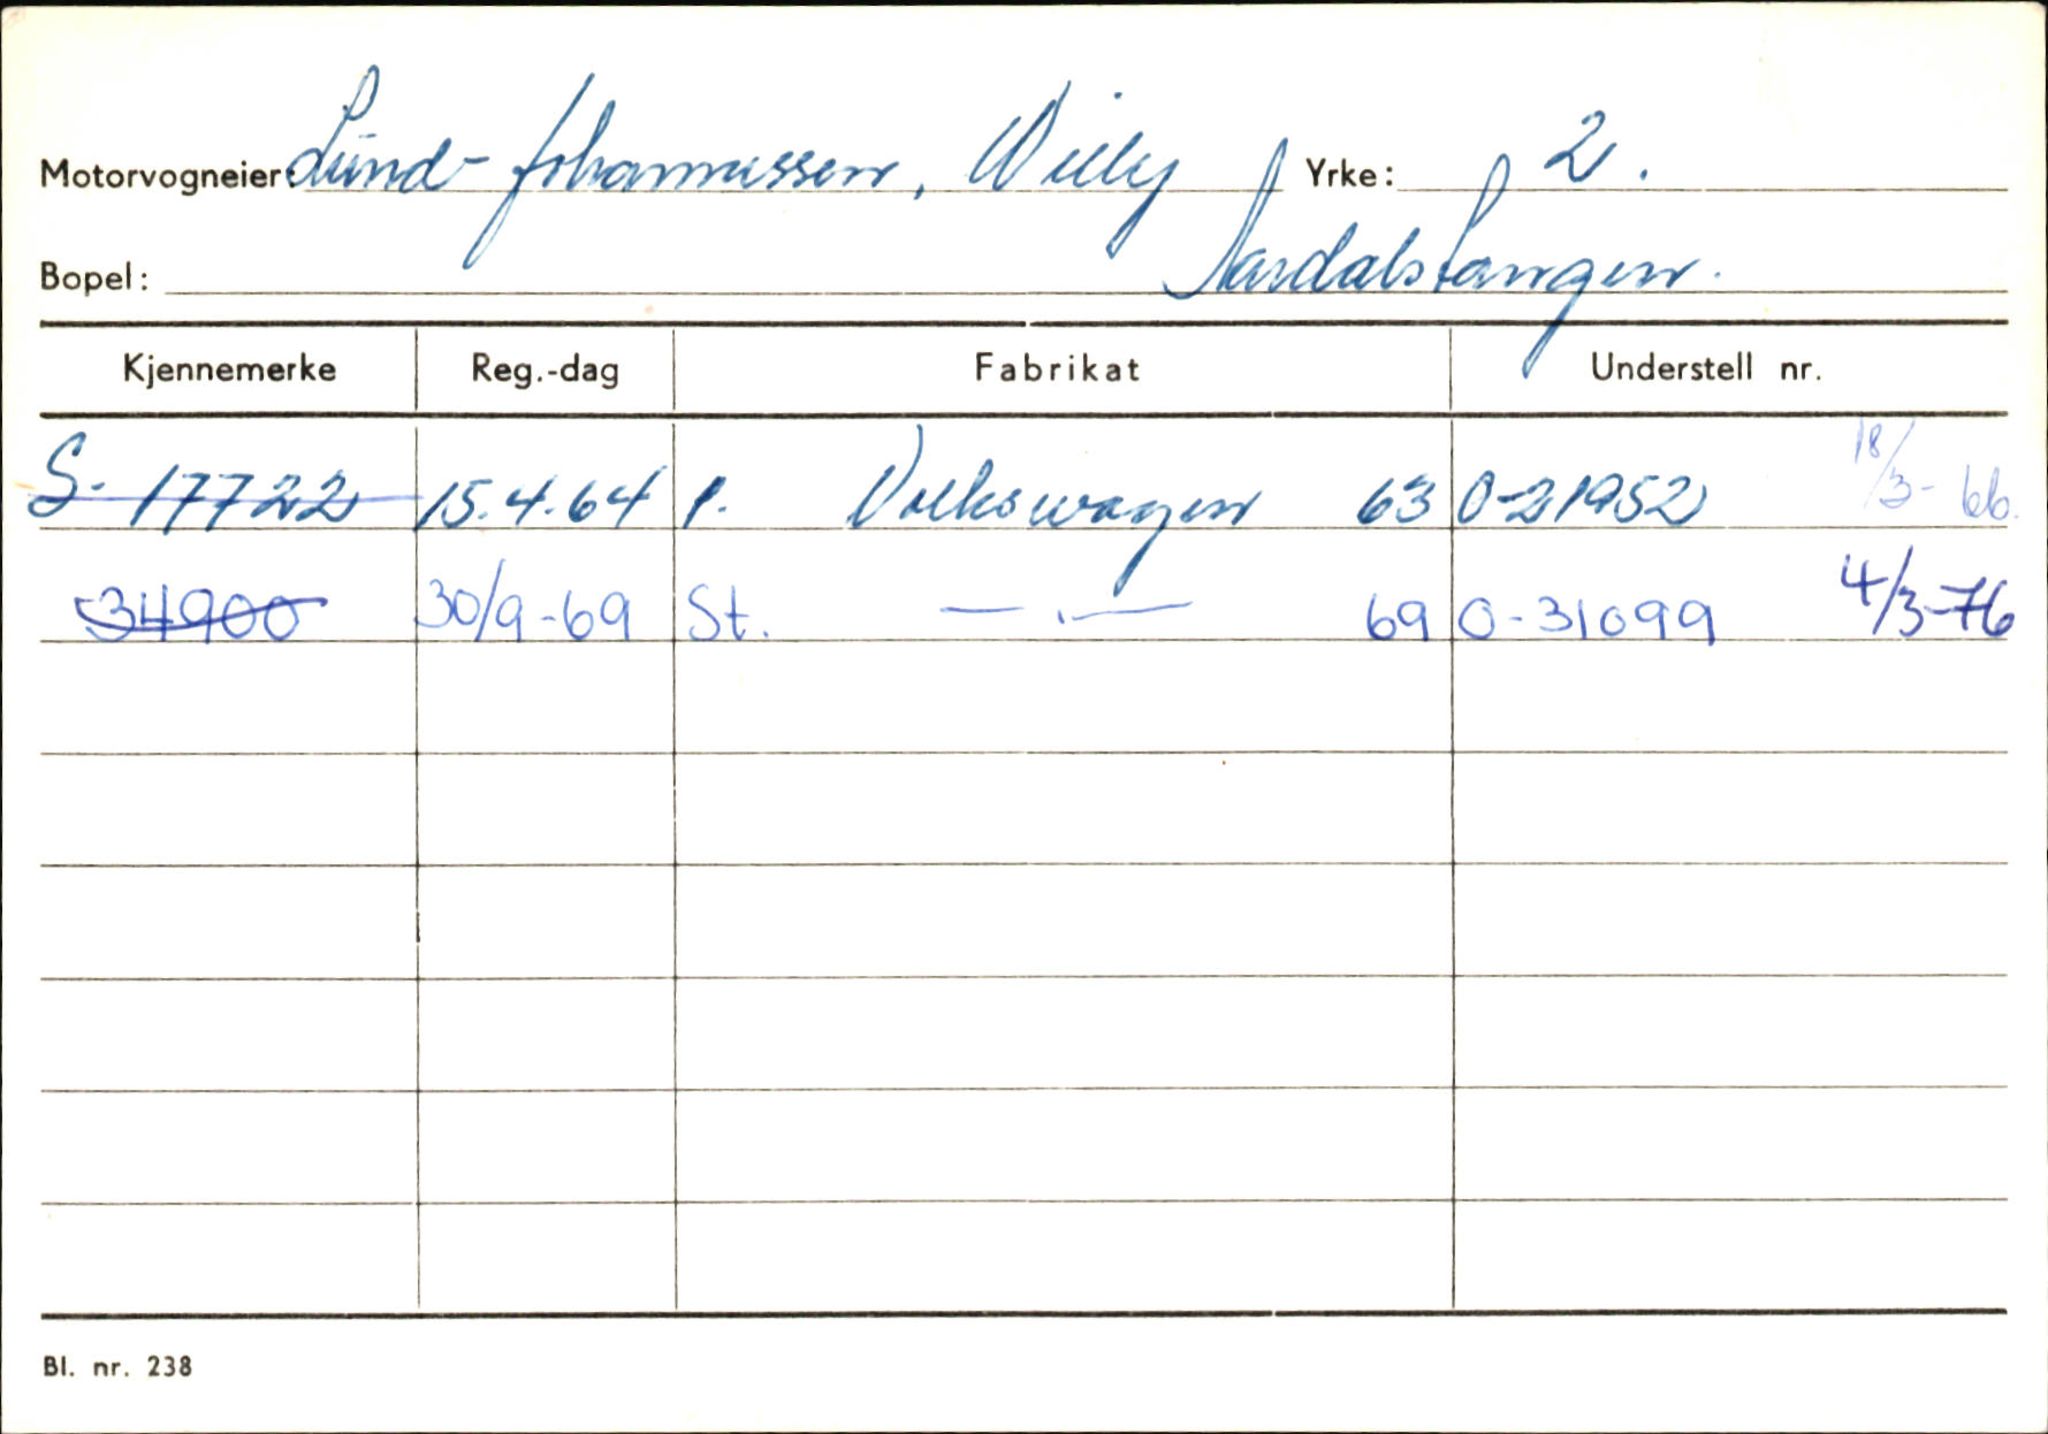 Motorvogneier: Lund-Johannessen, Willy Yrke: 2.
Bopel: Aardalstangen.
Kjennemerke Reg.-dag Fabrikat Understell nr.
S- 17722 15.4.64 P. Volkswagen 63 0-21952 18/3-66.
34900 30/9-69 St. — . — 69 0-31099 4/3-76
Bl. nr. 238